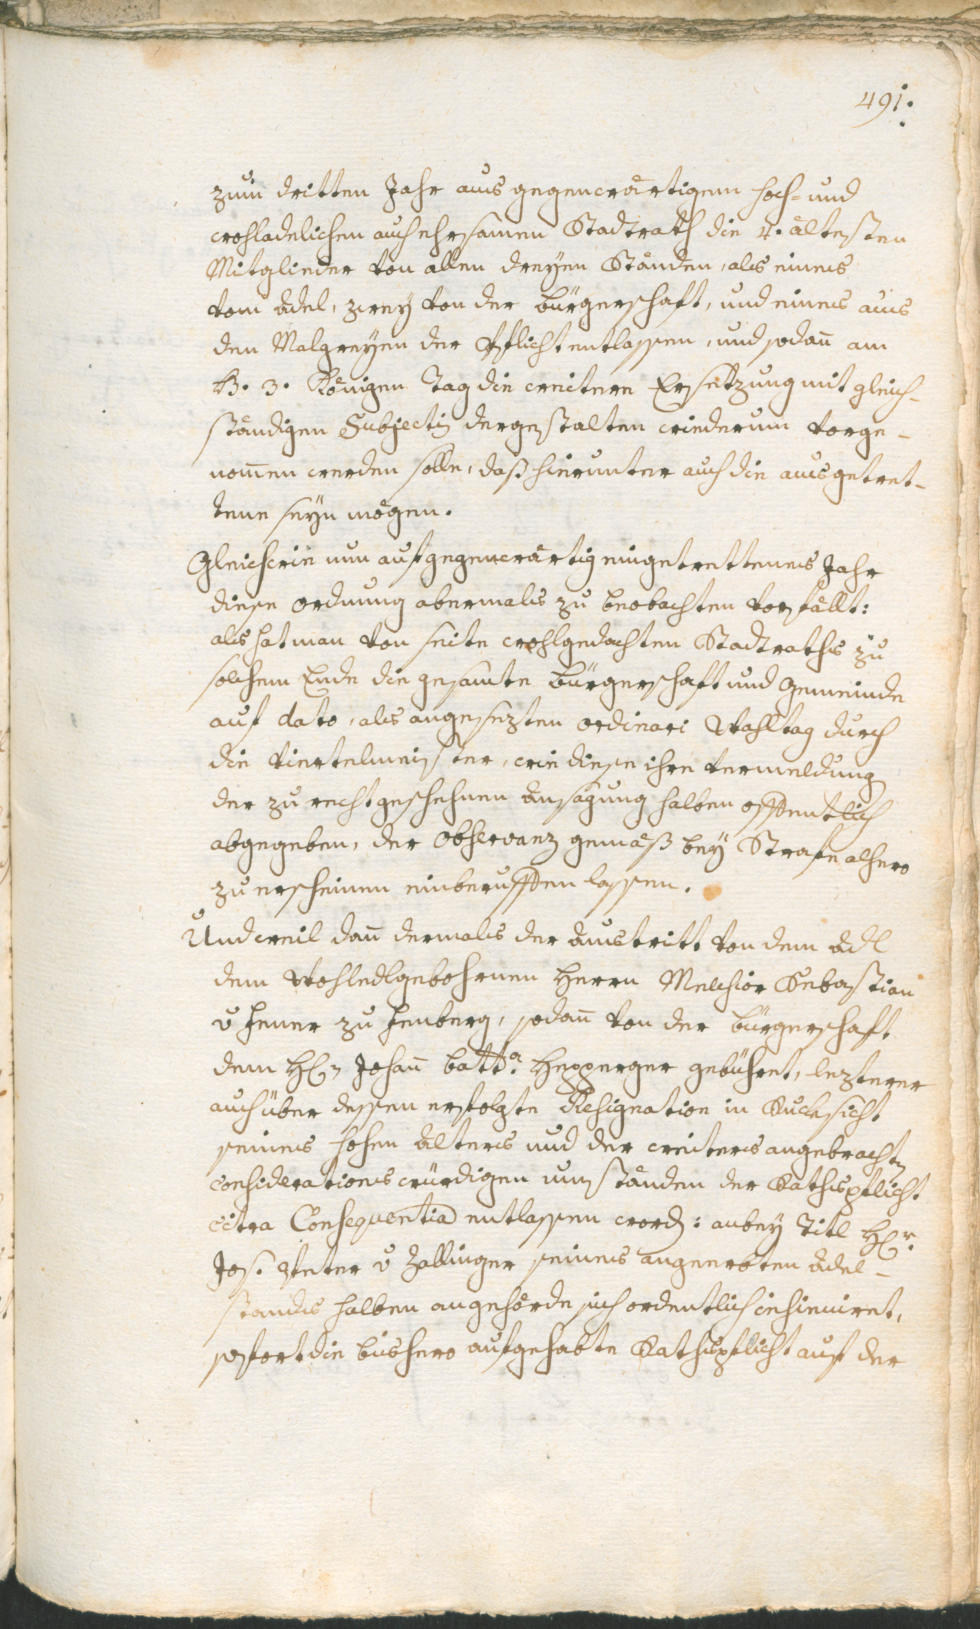 491.
zum dritten Jahr aus gegenwärtigem hoch- und
wohladelichen auch ehrsamen Stadtrath die 4. ältesten
Mitglieder von allen dreyen Ständen, als eines
vom Adel, zwey von der Bürgerschaft, und eines aus
den Malgreyen der Pflicht entlassen, und sodañ am
H. 3. Königen Tag die weitere Ersetzung mit gleich-
ständigen Subjectis dergestalten wiederum vorge-
nom̄en werden solle, daß hierunter auch die ausgetret-
tene seyn mögen.
Gleichwie nun auf gegenwärtig eingetrettenes Jahr
diese Ordnung abermals zu beobachten vorfällt:
als hat man von seite wohlgedachten Stadtraths zu
solchem Ende die gesamte Bürgerschaft und Gemeinde
auf dato, als angesezten ordinari Wahltag durch
die Viertelmeister, wie diese ihre Vermeldung
der zu recht geschehnen Ansagung halben öffentlich
abgegeben, der Observanz gemäß bey Strafe alhero
zu erscheinen einberuffen lassen.
Und weil dañ dermals der Austritt von dem Adl
dem Wohledlgebohrnen Herrn Melchior Sebastian
v Jenner zu Jenberg, sodañ von der Bürgerschaft
dem H: Johañ Batta: Hepperger gebühret, lezterer
auch über dessen erfolgte Resignation in Rucksicht
seines hohen Alters und der weiters angebrachten
considerations würdigen umständen der Rathspflicht
citra Consequentia entlassen word: anbey Titl Hr.
Jos. Peter v Zallinger seines angeerbten Adel-
stands halben angehörde sich ordentlich insinuiret,
sofort die bishero aufgehabte Rathspflicht auf der